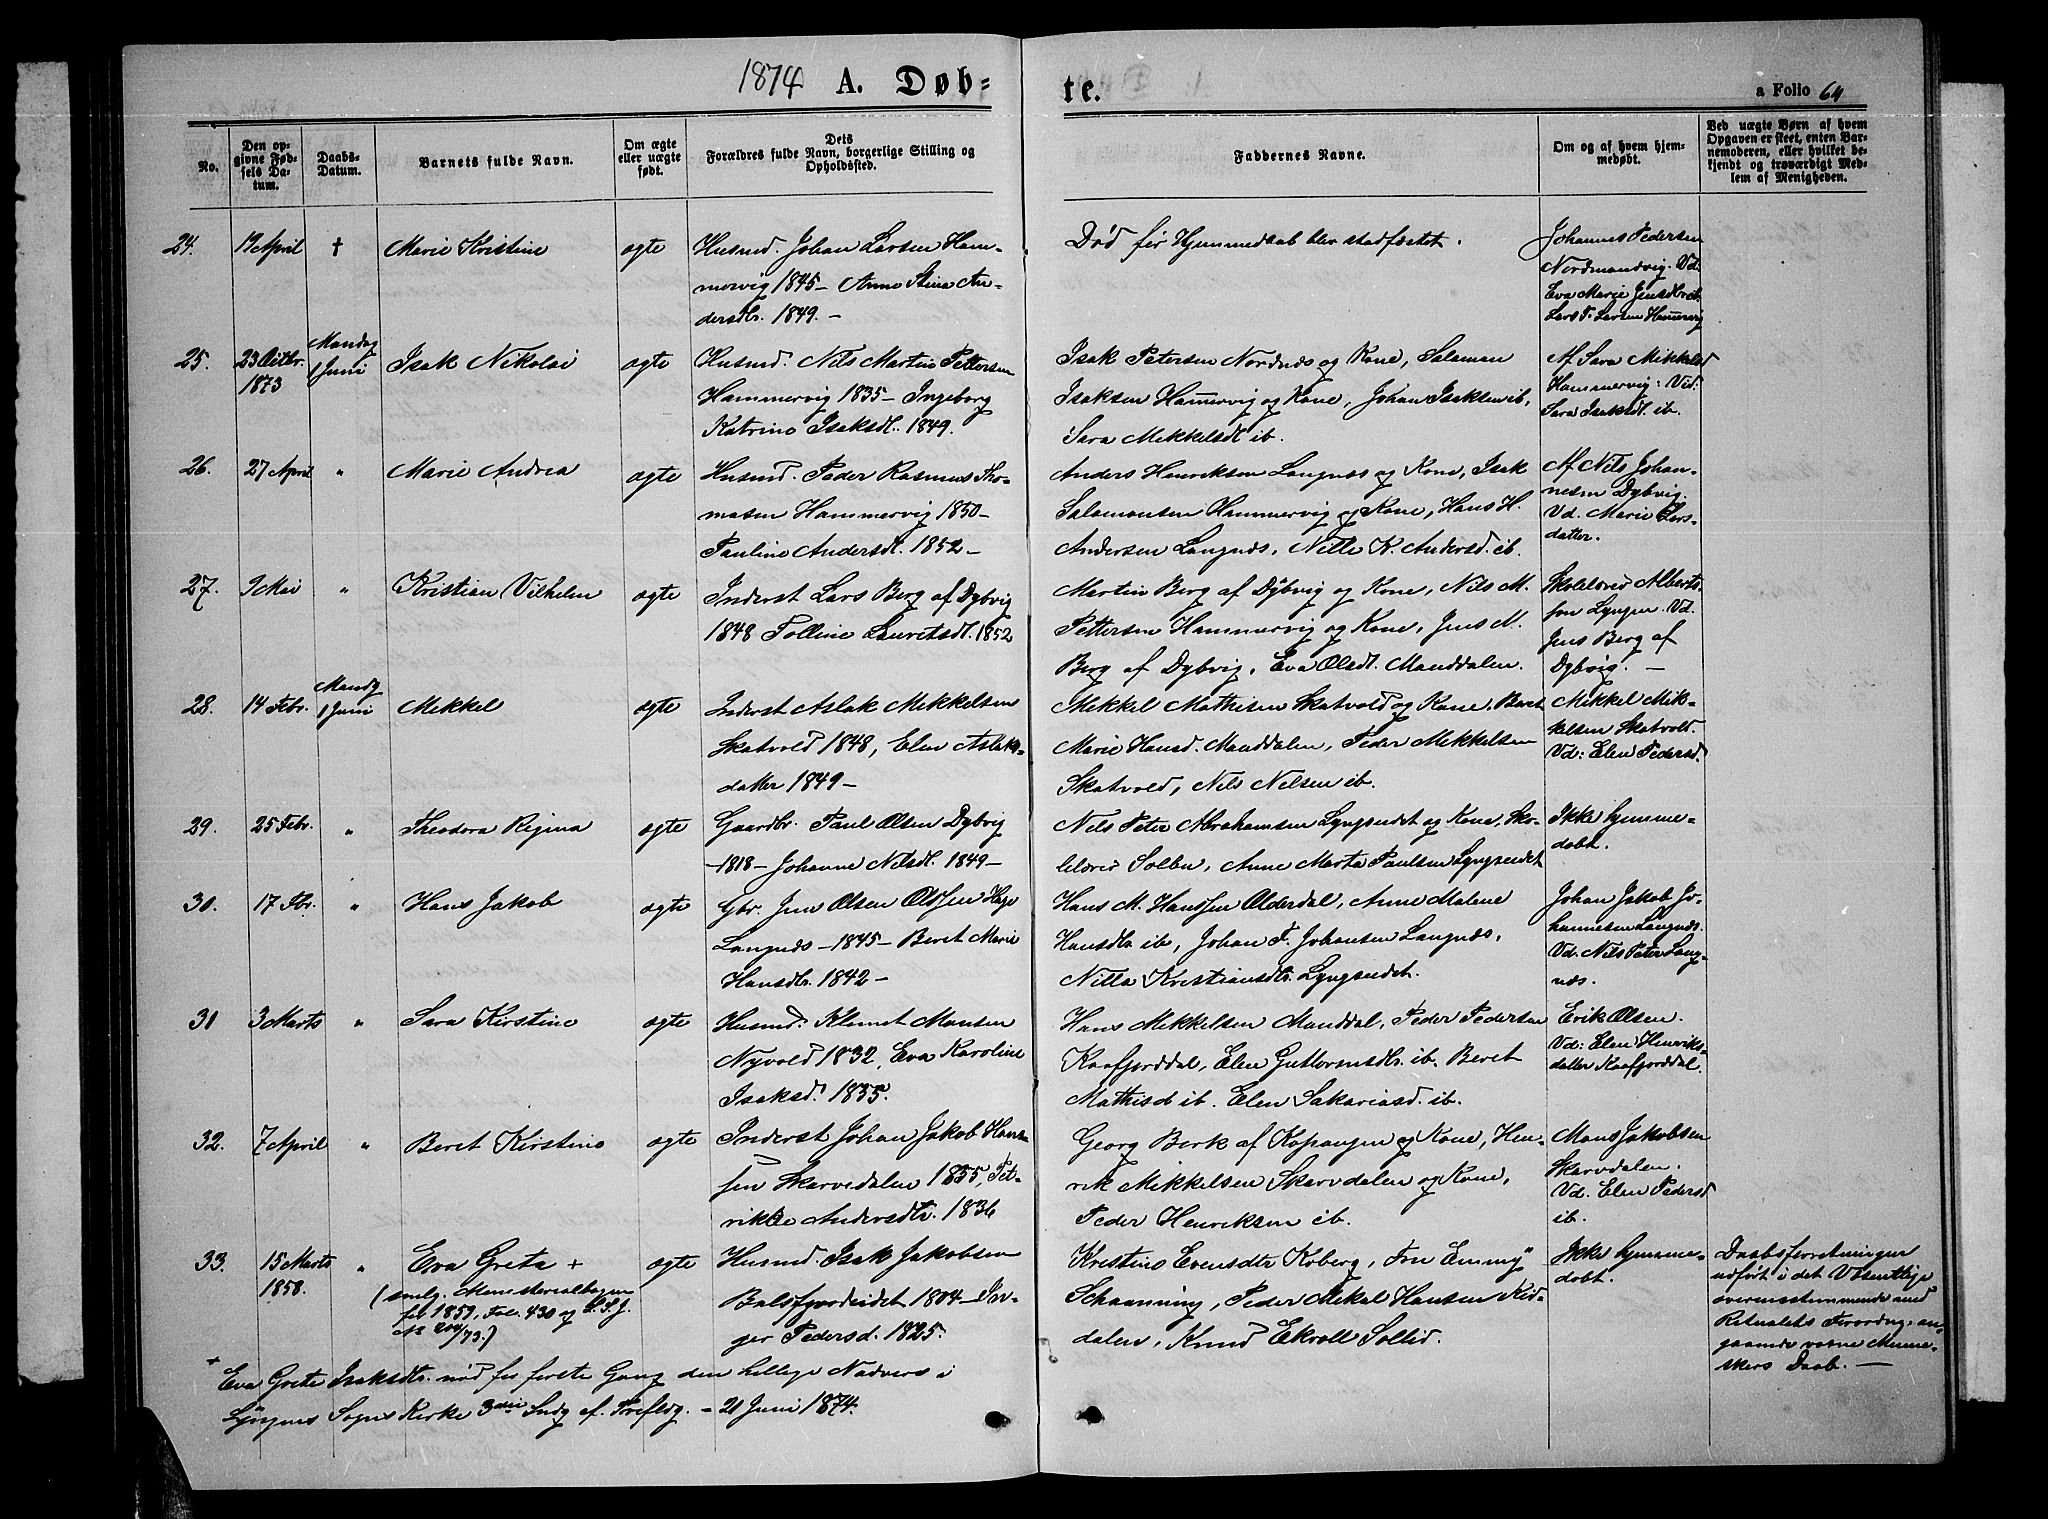 1874 A. Døb= te. a Folio 64
No.
Den op-
givne Fød-
sels Da-
tum.
Daabs-
Datum.
Barnets fulde Navn.
Om ægte
eller uægte
født.
Dets
Forældres fulde Navn, borgerlige Stilling og
Opholdssted.
Faddernes Navne.
Om og af hvem hjem-
medøbt.
Ved uægte Børn af hvem
Opgaven er skeet, enten Bar-
nemoderen, eller hvilket be-
kjendt og troværdigt Med-
lem af Menigheden.
24. 19 April † Marie Kristine ægte
Husmd. Johan Larsen Ham-
mervig 1845 – Anne Stina An-
dersdtr. 1849. –
Død før Hjemmedaab blev stadfæstet.
Johannes Pedersen
Nordmandvig. Vd:
Eva Marie Jensdtr ib.
Lars F. Larsen Hammervig
25. 23 Octbr. 1873
Mandag
1 Juni
Isak Nikolai ægte
Husmd. Nils Martin Pettersen
Hammervig 1835 – Ingeborg
Katrine Isaksdt. 1849.
Isak Petersen Nordnæs og Kone, Salaman
Isaksen Hammervig og Kone, Johan Isaksen ib,
Sara Mikkelsdt ib.
Af Sara Mikkelsd
Hammervig: Vid:
Sara Isaksdt. ib.
26. 27 April " Marie Andrea ægte
Husmd. Peder Rasmus Tho-
masen Hammervig 1850 –
Pauline Andersdt. 1852 –
Anders Henriksen Langnæs og Kone, Isak
Salamonsen Hammervig og Kone, Hans H.
Andersen Langnæs, Nille K. Andersd. ib.
Af Nils Johan-
nesen Dybvig.
Vd. Marie Lars-
datter.
27. 9 Mai " Kristian Vilhelm ægte
Inderst Lars Berg af Dybvig
1848 Tolline Lauritsdt. 1852
Martin Berg af Dybvig og Kone, Nils M.
Pettersen Hammervig og Kone, Jens M.
Berg af Dybvig, Eva Olsdt. Manddalen.
Skolelærer Alberts-
sen Lyngen. Vd.
Jens Berg af
Dybvig. –
28. 14 Febr.
Mandg
1 Juni
Mikkel ægte
Inderst Aslak Mikkelsen
Skatvold 1848, Elen Aslaks-
datter 1849 –
Mikkel Mathisen Skatvold og Kone, Beret
Marie Hansd. Manddalen, Peder Mikkelsen
Skatvold, Nils Nilsen ib.
Mikkel Mik-
kelsen Skatvold.
Vd: Elen Pedersd.
29. 25 Febr. " Theodora Regina ægte
Gaardbr. Paul Olsen Dybvig
– 1818 – Johanne Nilsdt. 1849 –
Nils Peter Abrahamsen Lyngseidet og Kone, Sko-
lelærer Solbu, Anne Marta Paulsen Lyngseidet
Ikke hjemme-
døbt.
30. 17 Fbr. " Hans Jakob ægte
Gbr. Jens Olsen
Langnæs – 1845 – Beret Marie
Hansdtr. 1842 –
Hans M. Hanssen Olderdal, Anne Malene
Hansdtr ib, Johan F. Johansen Langnæs,
Nilla Kristiansdtr. Lyngseidet.
Johan Jakob Jo-
hannesen Langnæs.
Vd. Nils Peter Lang-
næs.
31 3 Marts " Sara Kirstine ægte
Husmd. Klemet Monsen
Nyvold 1832, Eva Karoline
Isaksd. 1835.
Hans Mikkelsen Manddal, Peder Pedersen
Kaafjorddal, Elen Guttormsdtr. ib. Beret
Mathisd ib. Elen Sakariasd. ib.
Erik Olsen.
Vd: Elen Henriks-
datter Kaafjorddal.
32. 7 April " Beret Kirstine ægte
Inderst Johan Jakob Hans-
sen Skarvedalen 1855, Pet-
rikke Andersdtr. 1836
Georg Berk af Kopangen og Kone, Hen-
rik Mikkelsen Skarvdalen og Kone,
Peder Henriksen ib.
Mons Jakobsen
Skarvdalen.
Vd. Elen Pedersd
ib.
33. 15 Marts 1858. " Eva Greta +
(smlg. Ministerialbogen
for 1859, Fol. 430 og
No /73.)
ægte
Husmd. Isak Jakobsen
Balsfjordeidet 1804 – In-
ger Pedersd. 1825.
Kristine Evensdtr Koberg, Fru Emmy
Schaanning, Peder Mikal Hansen Kid-
dalen, Knud Ekroll Sollid.
Ikke hjemme-
døbt.
Daabsforretningen
udført i det Væsentlige
overensstemmende med
Ritualets Forordng. an-
gaaende voxne Menne-
skers Daab. –
+ Eva Grete Isaksdtr. nød for første Gang den hellige Nadvere i
Lyngens Sogns Kirke 3die Sndg ef. Trefldg. – 21 Juni 1874.